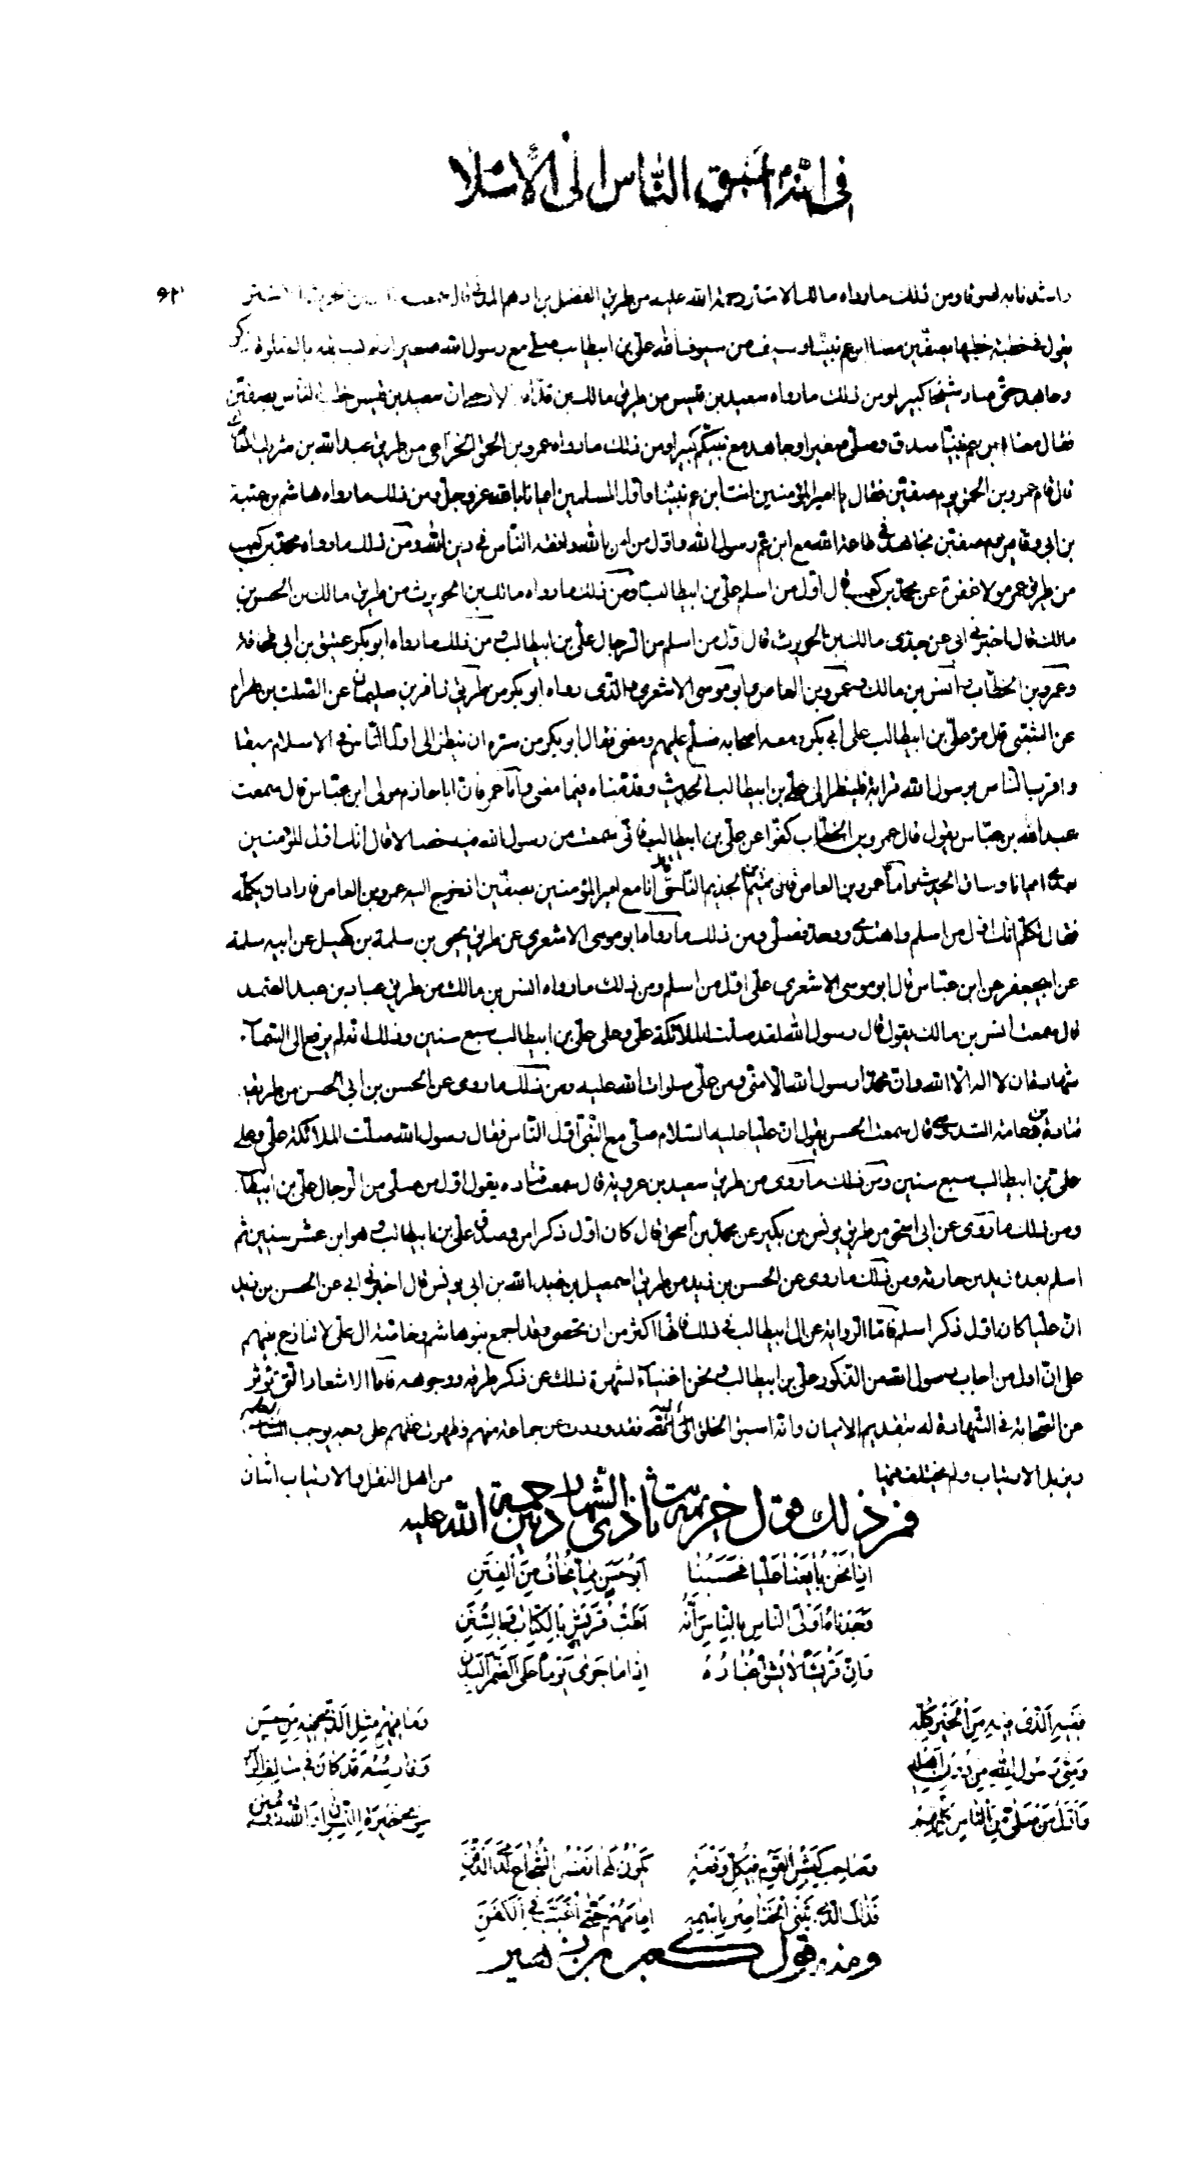 في انه اسبق الناس الى الاسلام
ومن ذلك ما رواه مالك الاشتر رحمة الله عليه من طريق الفضل بن ادهم المدنى قال سمعت
يقول فى خطبة خطبها بصفين معنا ابن عم نبينا وسيف من سيوف الله على بن ابيطالب صلى مع رسول الله صغيرا ولم يسبقه بالصلوة ذكر
وجاهد حتى صار شيخا كبيرا ومن ذلك ما رواه سعيد بن قيس من طريق مالك بن قدامة الارحبى ان سعيد بن قيس خطب الناس بصفين
فقال معنا ابن عم نبينا صدق وصلى صغيرا وجاهد مع نبيكم كبيرا ومن ذلك ما رواه عمرو بن الحمق الخزاعى من طريق عبد الله بن شريك العامرى
قال قام عمرو بن الحمق يوم صفين فقال يا امير المؤمنين انت ابن عم نبينا واول المسلمين ايمانا بالله عز وجل ومن ذلك ما رواه هاشم بن عتبة
بن ابى وقاص يوم صفين نجاهد فى طاعة الله مع ابن عم رسول الله واول من امن بالله وافقه الناس فى دين الله ومن ذلك ما رواه محمد بن كعب
من طريق عمر مولا غفرة عن محمد بن كعب قال اول من اسلم على بن ابيطالب ومن ذلك ما رواه مالك بن الحويرث من طريق مالك بن الحسن بن
مالك قال اخبرنى ابى عن جدى مالك بن الحويرث قال اول من اسلم من الرجال على بن ابيطالب ومن ذلك ما رواه ابو بكر عتيق بن ابى قحافة
وعمر بن الخطاب وانس بن مالك وعمرو بن العاص وابو موسى الاشعرى والذى رواه ابو بكر من طريق زافر بن سليمان عن الصلت بن بهرام
عن الشعبى قال مر على بن ابيطالب على ابى بكر ومعه اصحابه فسلم عليهم ومضى فقال ابو بكر من سره ان ينظر الى اول الناس فى الاسلام سبقا
واقرب الناس برسول الله قرابة فلينظر الى على بن ابيطالب الحديث وقد قدمناه فيما مضى واما عمر فان ابا حازم مولى ابن عباس قال سمعت
عبد الله بن عباس يقول قال عمر بن الخطاب كفوا عن على بن ابيطالب فانى سمعت من رسول الله فيه خصالا قال انك اول المؤمنين
بعدى ايمانا وساق الحديث واما عمرو بن العاص فان تميم بن الجذيم الناجى قال انا مع امير المؤمنين بصفين اذ خرج اليه عمرو بن العاص فاراد ان يكلمه
فقال تكلم انك اول من اسلم واهتدى ووحد فصلى ومن ذلك ما رواه ابو موسى الاشعرى عن طريق يحيى بن سلمة بن كهيل عن ابيه سلمة
عن ابى جعفر عن ابن عباس قال ابو موسى الاشعرى على اول من اسلم ومن ذلك ما رواه انس بن مالك من طريق عباد بن عبد الصمد
قال سمعت انس بن مالك يقول قال رسول الله لقد صلت الملائكة على وعلى على بن ابيطالب سبع سنين وذلك انه لم يرفع الى السماء
شهادة ان لا اله الا الله وان محمدا رسول الله الا منى ومن على صلوات الله عليه ومن ذلك ما روى عن الحسن بن ابى الحسن من طريق
قتادة بن دعامة السدوسى قال سمعت الحسن يقول ان عليا عليه السلام صلى مع النبى اول الناس فقال رسول الله صلت الملائكة على وعلى
على بن ابيطالب سبع سنين ومن ذلك ما روى من طريق سعيد بن عروبة قال سمعت قتادة يقول اول من صلى من الرجال على بن ابيطالب
ومن ذلك ما روى عن ابى اسحق من طريق يونس بن بكير عن محمد بن اسحق قال كان اول ذكر امن وصدق على بن ابيطالب وهو ابن عشر سنين ثم
اسلم بعده زيد بن حارثة ومن ذلك ما روى عن الحسن بن زيد من طريق اسمعيل بن عبد الله بن ابى يونس قال اخبرنى ابى عن الحسن بن زيد
ان عليا كان اول ذكر اسلم فاما الرواية عن ال ابيطالب فى ذلك فانها اكثر من ان تحصى وقد اجمع بنو هاشم وخاصة ال على لا تنازع بينهم
على ان اول من اجاب رسول الله من الذكور على بن ابيطالب ونحن اغنياء لشهرة ذلك عن ذكر طرقه ووجوهه فاما الاشعار التى تؤثر
عن الصحابة فى الشهادة له بتقديم الايمان وانه اسبق الخلق اليه فقد وردت عن جماعة منهم وظهرت عنهم على وجه يوجب العلم
ويزيل الارتياب ولم يختلف فيها من اهل النقل والاثار اثنان
فمن ذلك قول خزيمة بن ثابت ذى الشهادتين رحمة الله عليه
اذا نحن بايعنا عليا فحسبنا ابو حسن مما نخاف من الفتن
وجدناه اولى الناس بالناس انه اطب قريش بالكتاب وبالسنن
وان قريشا لا يشق غباره اذا ما جرى يوما على الضمر البدن
ففيه الذى فيهم من الخير كله وما فيهم مثل الذى فيه من حسن
وصى رسول الله من دون اهله وفارسه قد كان فى سالف الزمن
واول من صلى من الناس كلهم سوى خيرة النسوان والله ذو منن
وصاحب كبش القوم فى كل وقعة يكون لها نفس الشجاع لدى الذقن
فذاك الذى تثنى الخناصر باسمه امامهم حتى اغيب فى الكفن
ومنه قول كعب بن زهير